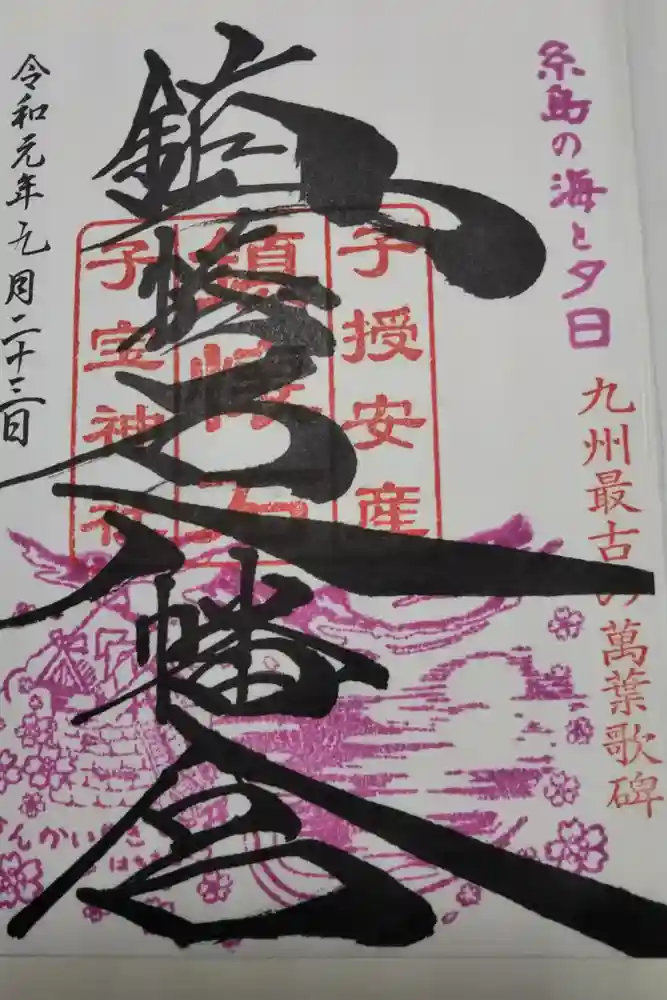 糸島の海と夕日
九州最古の萬葉歌碑
子授安産
鎮懐石
子宝神社
鎮懐石八幡宮
令和元年九月二十三日
んかいせき